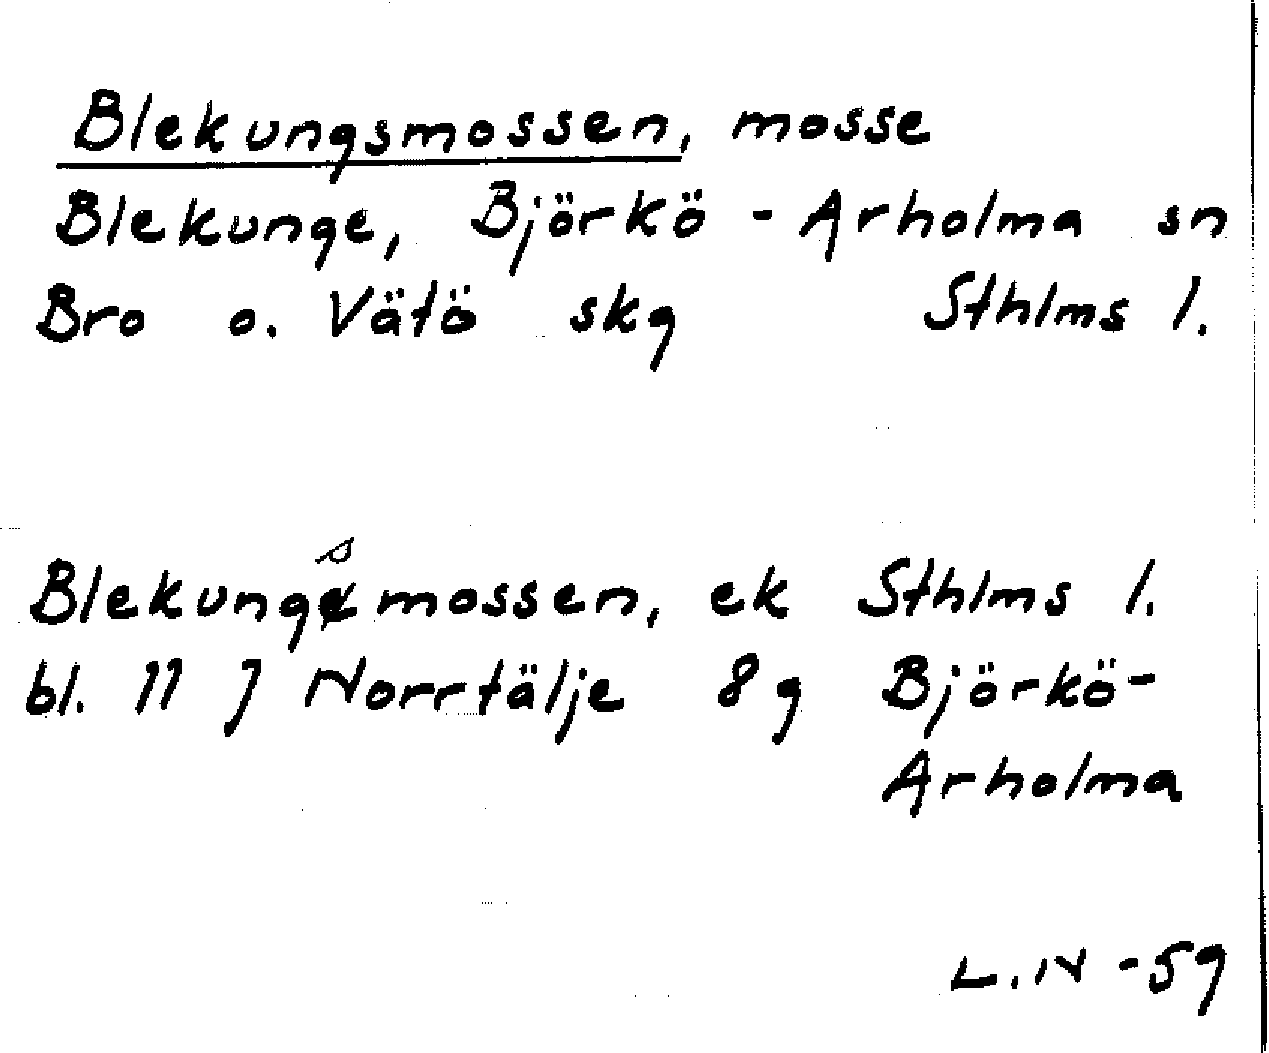 Blekungsmossen, mosse
Blekunge, Björkö - Arholma sn
Bro o. Vätö skg Sthlms l.
Blekungsmossen, ek Sthlms l.
bl. 11 J Norrtälje 8g Björkö-
Arholma
L.N -59